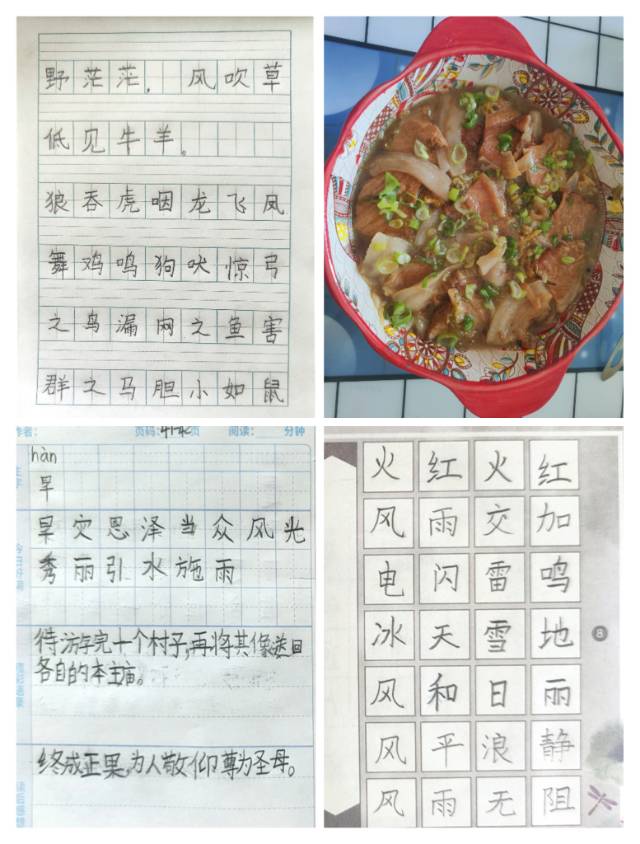 野茫茫，风吹草
低见牛羊。
狼吞虎咽龙飞凤
舞鸡鸣狗吠惊弓
之鸟漏网之鱼害
群之马胆小如鼠
页码: 页 阅读: 分钟
hàn
旱
旱灾恩泽当众风光
秀丽引水施雨
待游完十个村子,再将其像送回
各自的本主庙。
终成正果,为人敬仰尊为圣母。
火红火红
风雨交加
电闪雷鸣
冰天雪地
8
风和日丽
风平浪静
风雨无阻